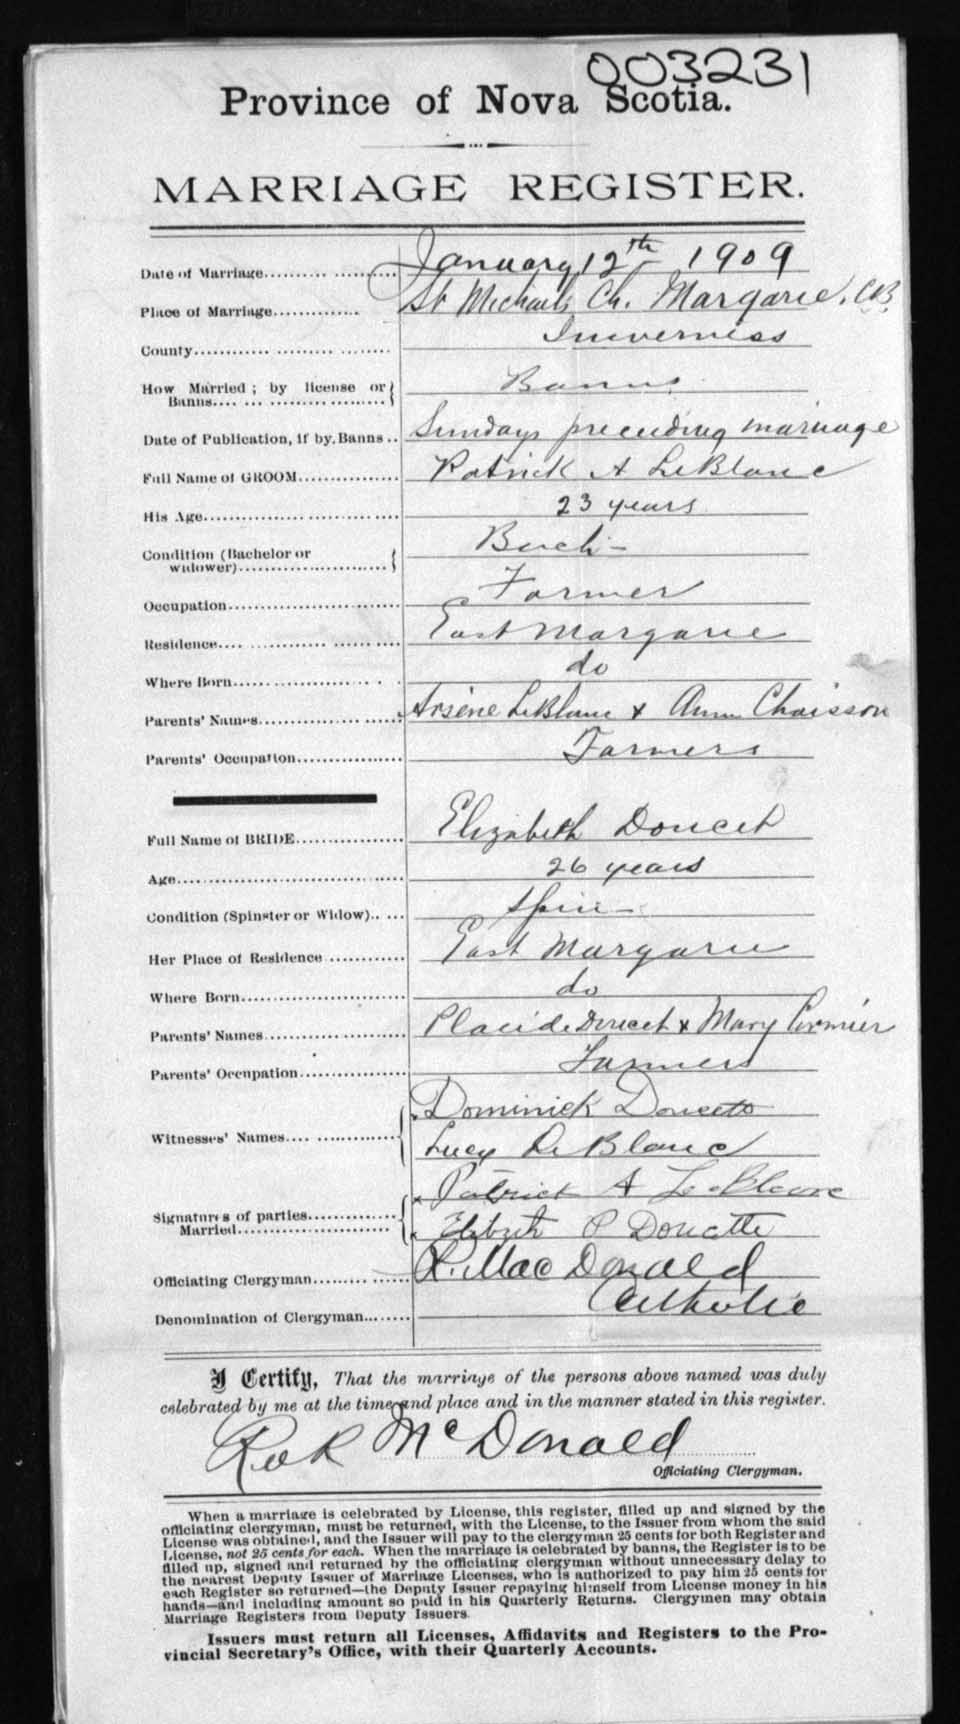 003231
Province of Nova Scotia.
MARRIAGE REGISTER.
Date of Marriage.......... January 12th 1909
Place of Marriage.......... St Michaels Ch. Margarie. CB.
County.......... Inverness
How Married; by license or Banns.......... Banns
Date of Publication, if by Banns.. Sundays preceeding marriage
Full Name of GROOM.......... Patrick A LeBlanc
His Age.......... 23 years
Condition (Bachelor or widower).......... Bach-
Occupation.......... Farmer
Residence.......... East Margarie
Where Born.......... do
Parents' Names.......... Arsène LeBlanc & Ann Chaisson
Parents' Occupation.......... Farmers
Full Name of BRIDE.......... Elizabeth Doucet
Age.......... 26 years
Condition (Spinster or Widow).. ... Spin-
Her Place of Residence .......... East Margarie
Where Born.......... do
Parents' Names.......... Placide Doucet & Mary Cormier
Parents' Occupation.......... Farmers
Witnesses' Names.......... Dominick Doucette
Lucy LeBlanc
Signatures of parties Married.......... x Patrick A LeBlanc
x P Doucette
Officiating Clergyman.......... R. MacDonald
Denomination of Clergyman........ Catholic
I Certify, That the marriage of the persons above named was duly
celebrated by me at the time and place and in the manner stated in this register.
McDonald
Officiating Clergyman.
When a marriage is celebrated by License, this register, filled up and signed by the
officiating clergyman, must be returned, with the License, to the Issuer from whom the said
License was obtained, and the Issuer will pay to the clergyman 25 cents for both Register and
License, not 25 cents for each. When the marriage is celebrated by banns, the Register is to be
filled up, signed and returned by the officiating clergyman without unnecessary delay to
the nearest Deputy Issuer of Marriage Licenses, who is authorized to pay him 25 cents for
each Register so returned—the Deputy Issuer repaying himself from License money in his
hands—and including amount so paid in his Quarterly Returns. Clergymen may obtain
Marriage Registers from Deputy Issuers.
Issuers must return all Licenses, Affidavits and Registers to the Pro-
vincial Secretary's Office, with their Quarterly Accounts.